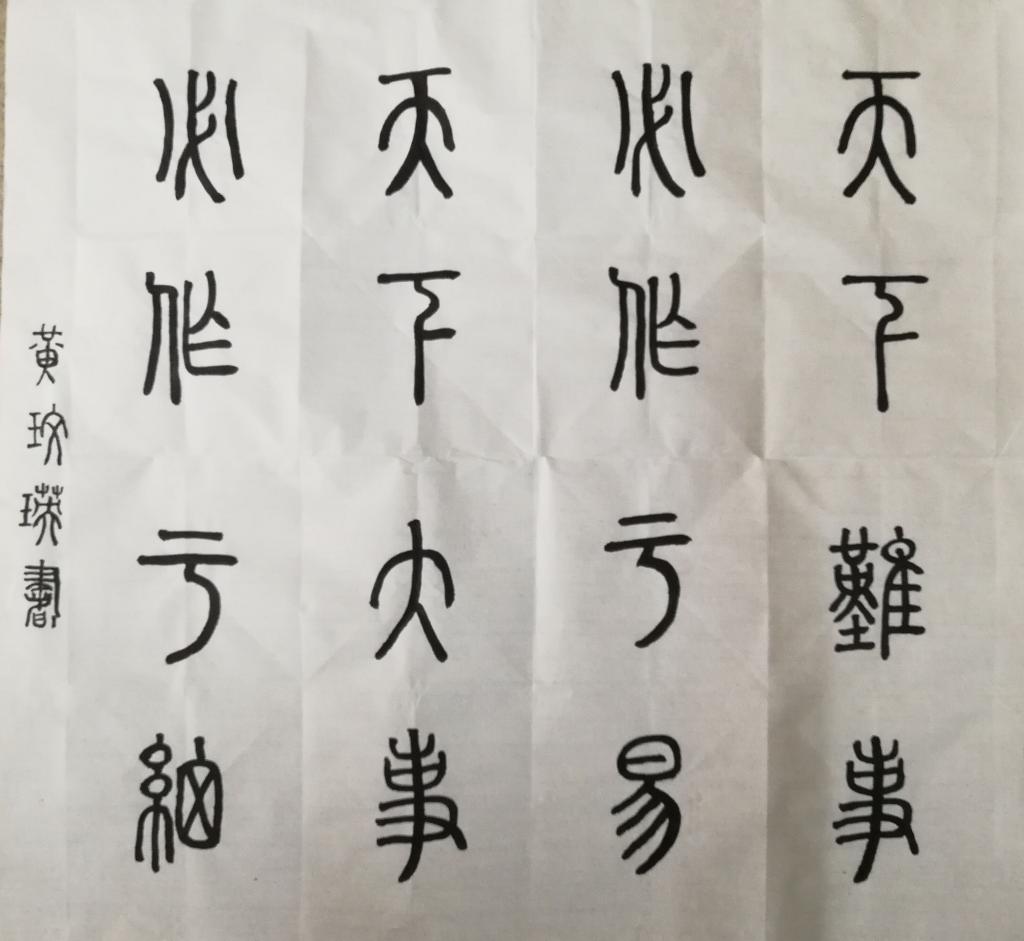 天下難事
必作于易
天下大事
必作于細
黃玟瑛書